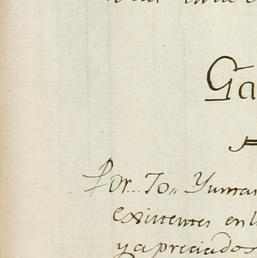 Ga
Por To,, Yuntas
existentes en l
y apreciados